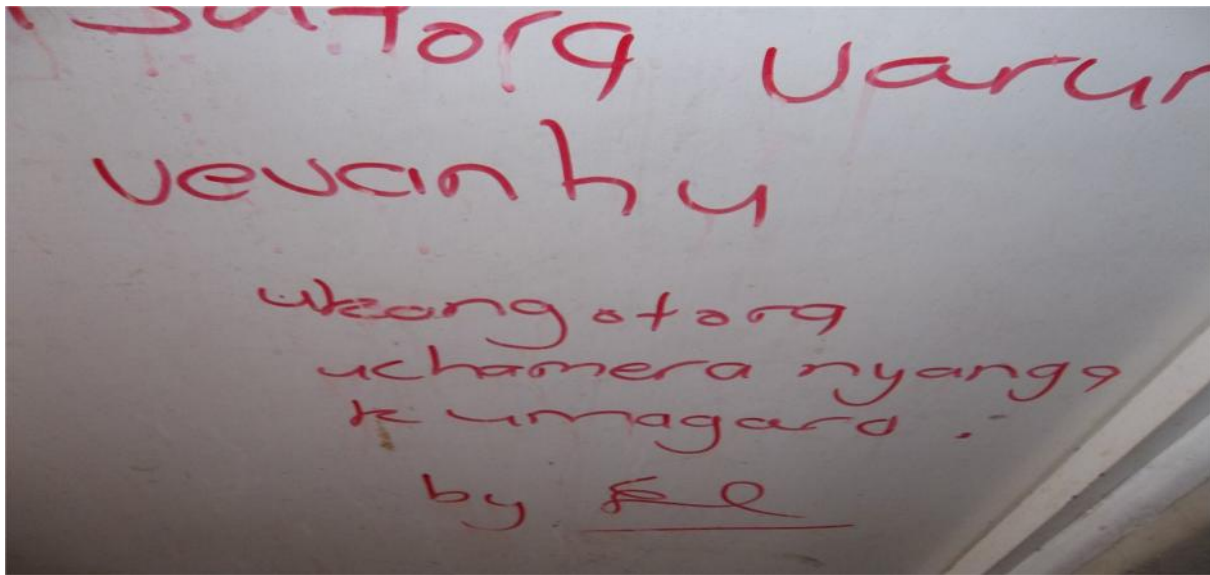 varur
vevanhu
ukangotora
uchamera nyanga
kumagaro.
by